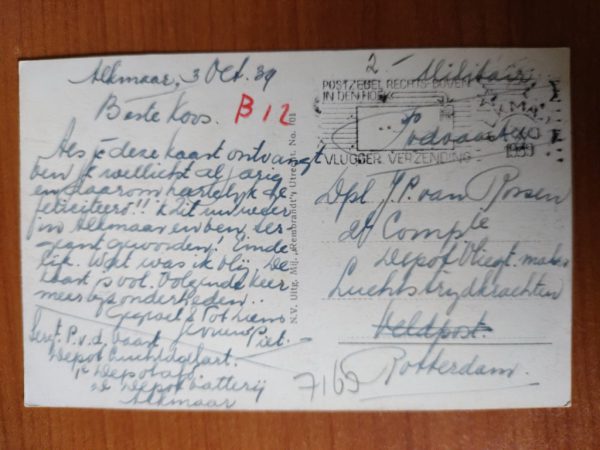 Alkmaar, 3 Oct. 39
Beste Koos.
B 12
Als je deze kaart ontvangt
ben je wellicht al jarig
en daarom hartelijk ge
feliciteerd!! Ik zit nu weer
in Alkmaar en ben ser
geant geworden! Einde
lijk. Wat was ik blij. De
kaart is vol. Volgende keer
meer bijzonderheden..
Gegroet & tot ziens
jouw Piet.
Sergt. P. v. d. Vaart
Depot Luchtdoelart.
1e Depotafd.
2e Depotbatterij
Alkmaar
N.V. Uitg. Mij. „Rembrandt", Utrecht. No. 101
2 - Militair
POSTZEGEL RECHTS-BOVEN
IN DEN HOEK
VLUGGER VERZENDING
1939
Dpl. J.P. van Rossen
de Compie
Depot Vliegt. makers
Luchtstrijdkrachten
Veldpost.
Rotterdam.
7165